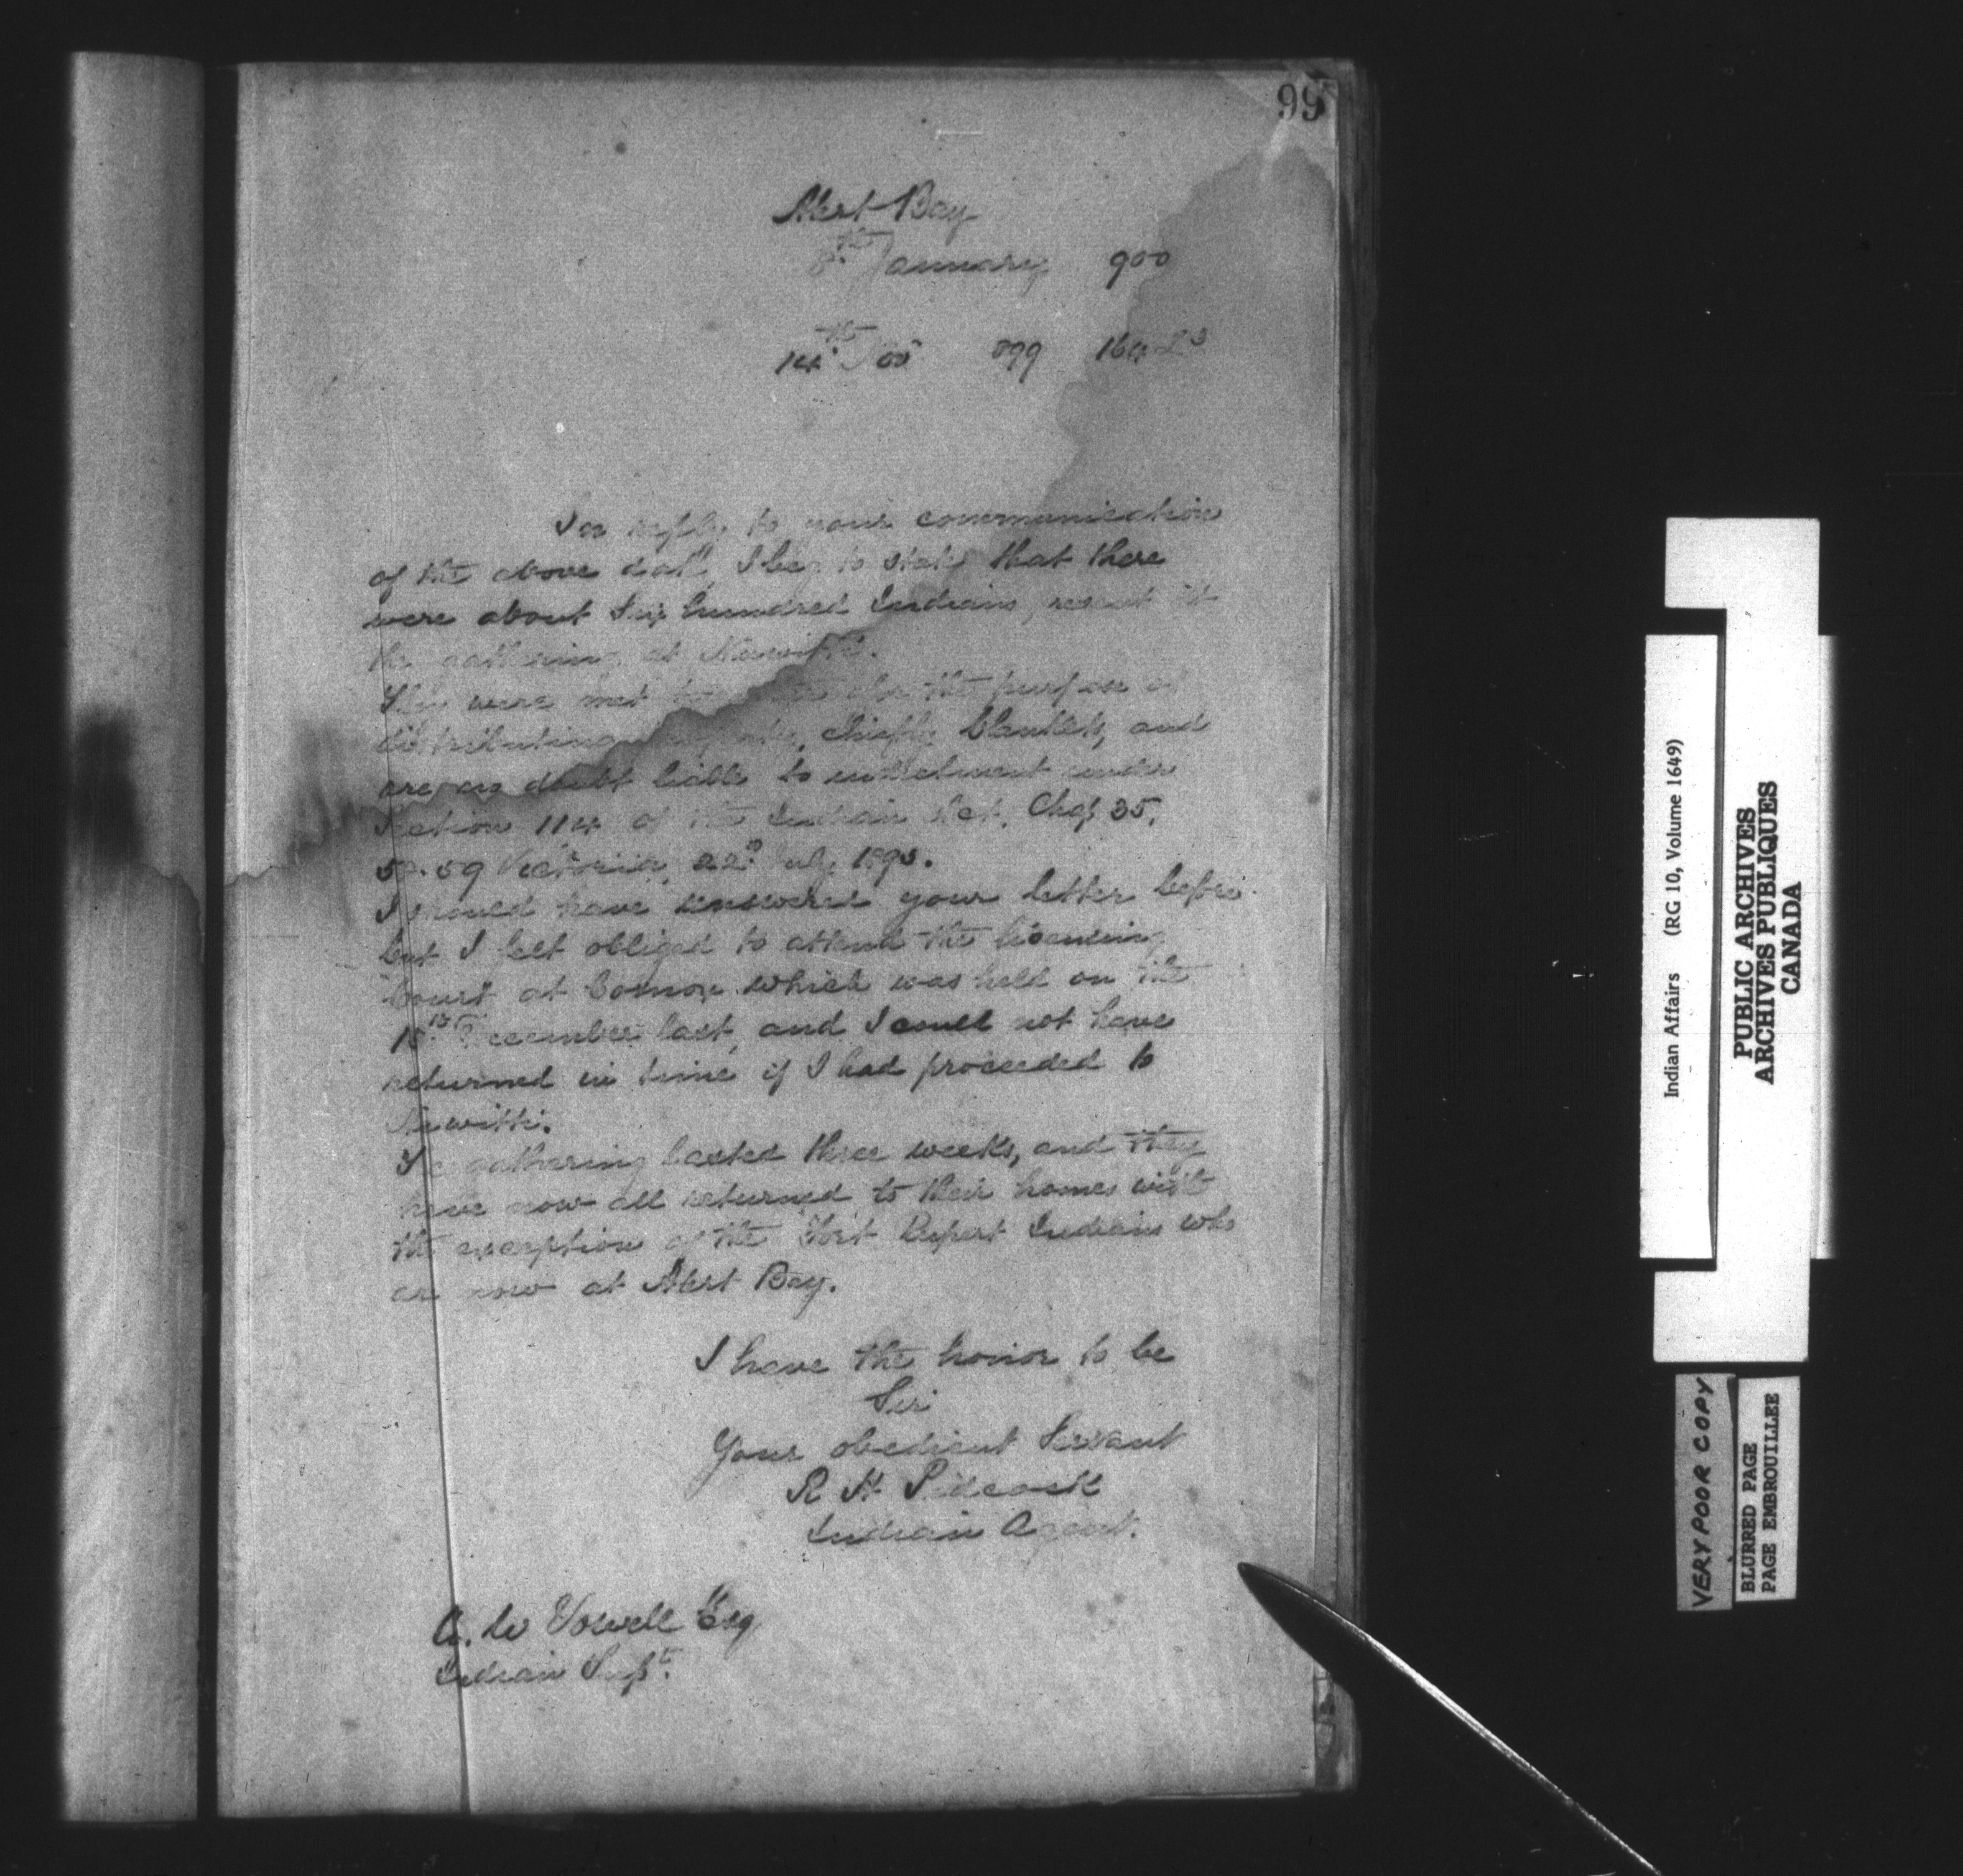 99
Alert Bay
8th January 900
14th 899
In reply to your communication
of the above date I beg to state that there
were about Six hundred Indians present at
the gathering at Newitti.
They were met together for the purpose of
distributing chiefly blankets, and
are no doubt liable to indictment under
Section 114 of the Indian Act, Chap 35,
58.59 Victoria, 22d July 1895.
I should have answered your letter before
but I felt obliged to attend the licensing
Court at Comox which was held on the
15th December last, and I could not have
returned in time if I had proceeded to
Newitti.
The gathering lasted three weeks, and they
have now all returned to their homes with
the exception of the Fort Rupert Indians who
are now at Alert Bay.
I have the honor to be
Sir
Your obedient Servant
R H Pidcock
Indian Agent.
A. W Vowell Esq
Indian Supt.
Indian Affairs (RG 10, Volume 1649)
PUBLIC ARCHIVES
ARCHIVES PUBLIQUES
CANADA
VERY POOR COPY
BLURRED PAGE
PAGE EMBROUILLEE